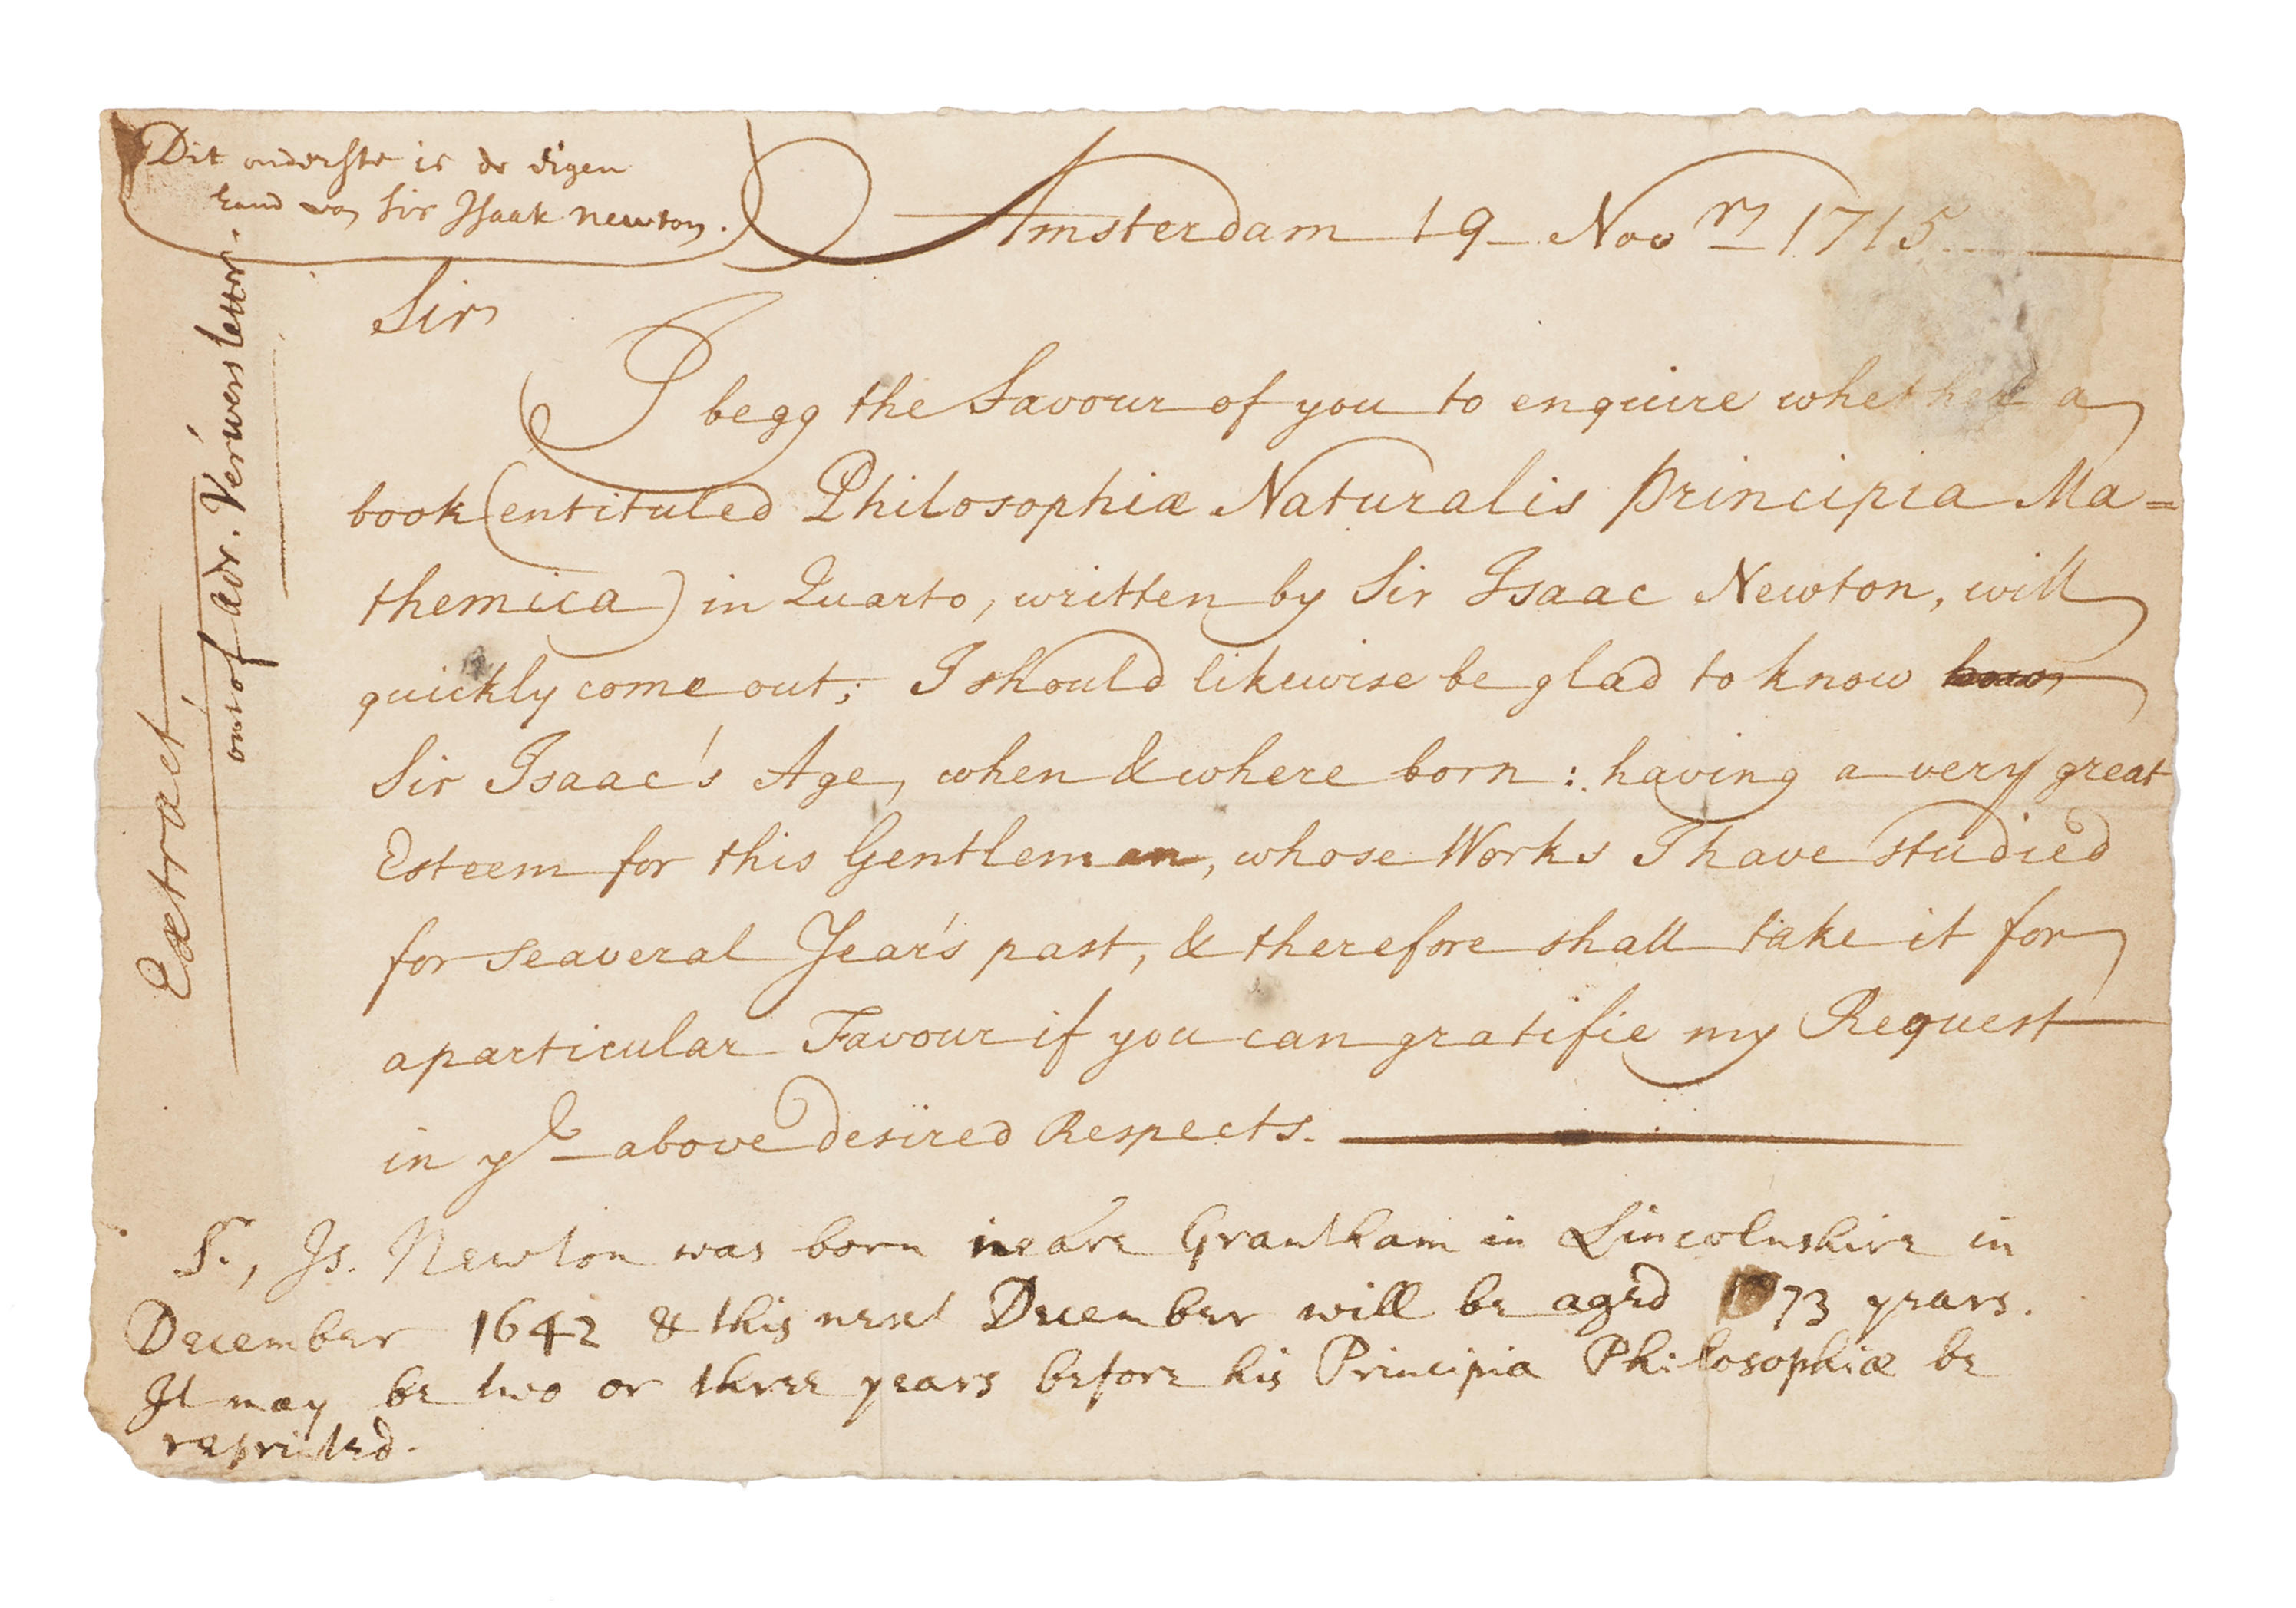 Dit onderste is de eigen
hand van Sir Isaak newton.
Amsterdam 19 Nov.^r 1715
Sir
I begg the favour of you to enquire whether a
book (entituled Philosophiæ Naturalis Principia Ma=
themica) in Quarto, written by Sir Isaac Newton, will
quickly come out; I should likewise be glad to know
Sir Isaac's Age, when & where born: having a very great
Esteem for this Gentleman, whose Works I have studied
for seaveral Year's past, & therefore shall take it for
a particular Favour if you can gratifie my Request
in y^e above desired Respects.
S^r., Is. Newton was born neare Grantham in Lincolnshire in
December 1642 & this next December will be aged 73 years.
It may be two or three years before his Principia Philosophiæ be
reprinted.
Extract
out of Adr. Verwers letter.